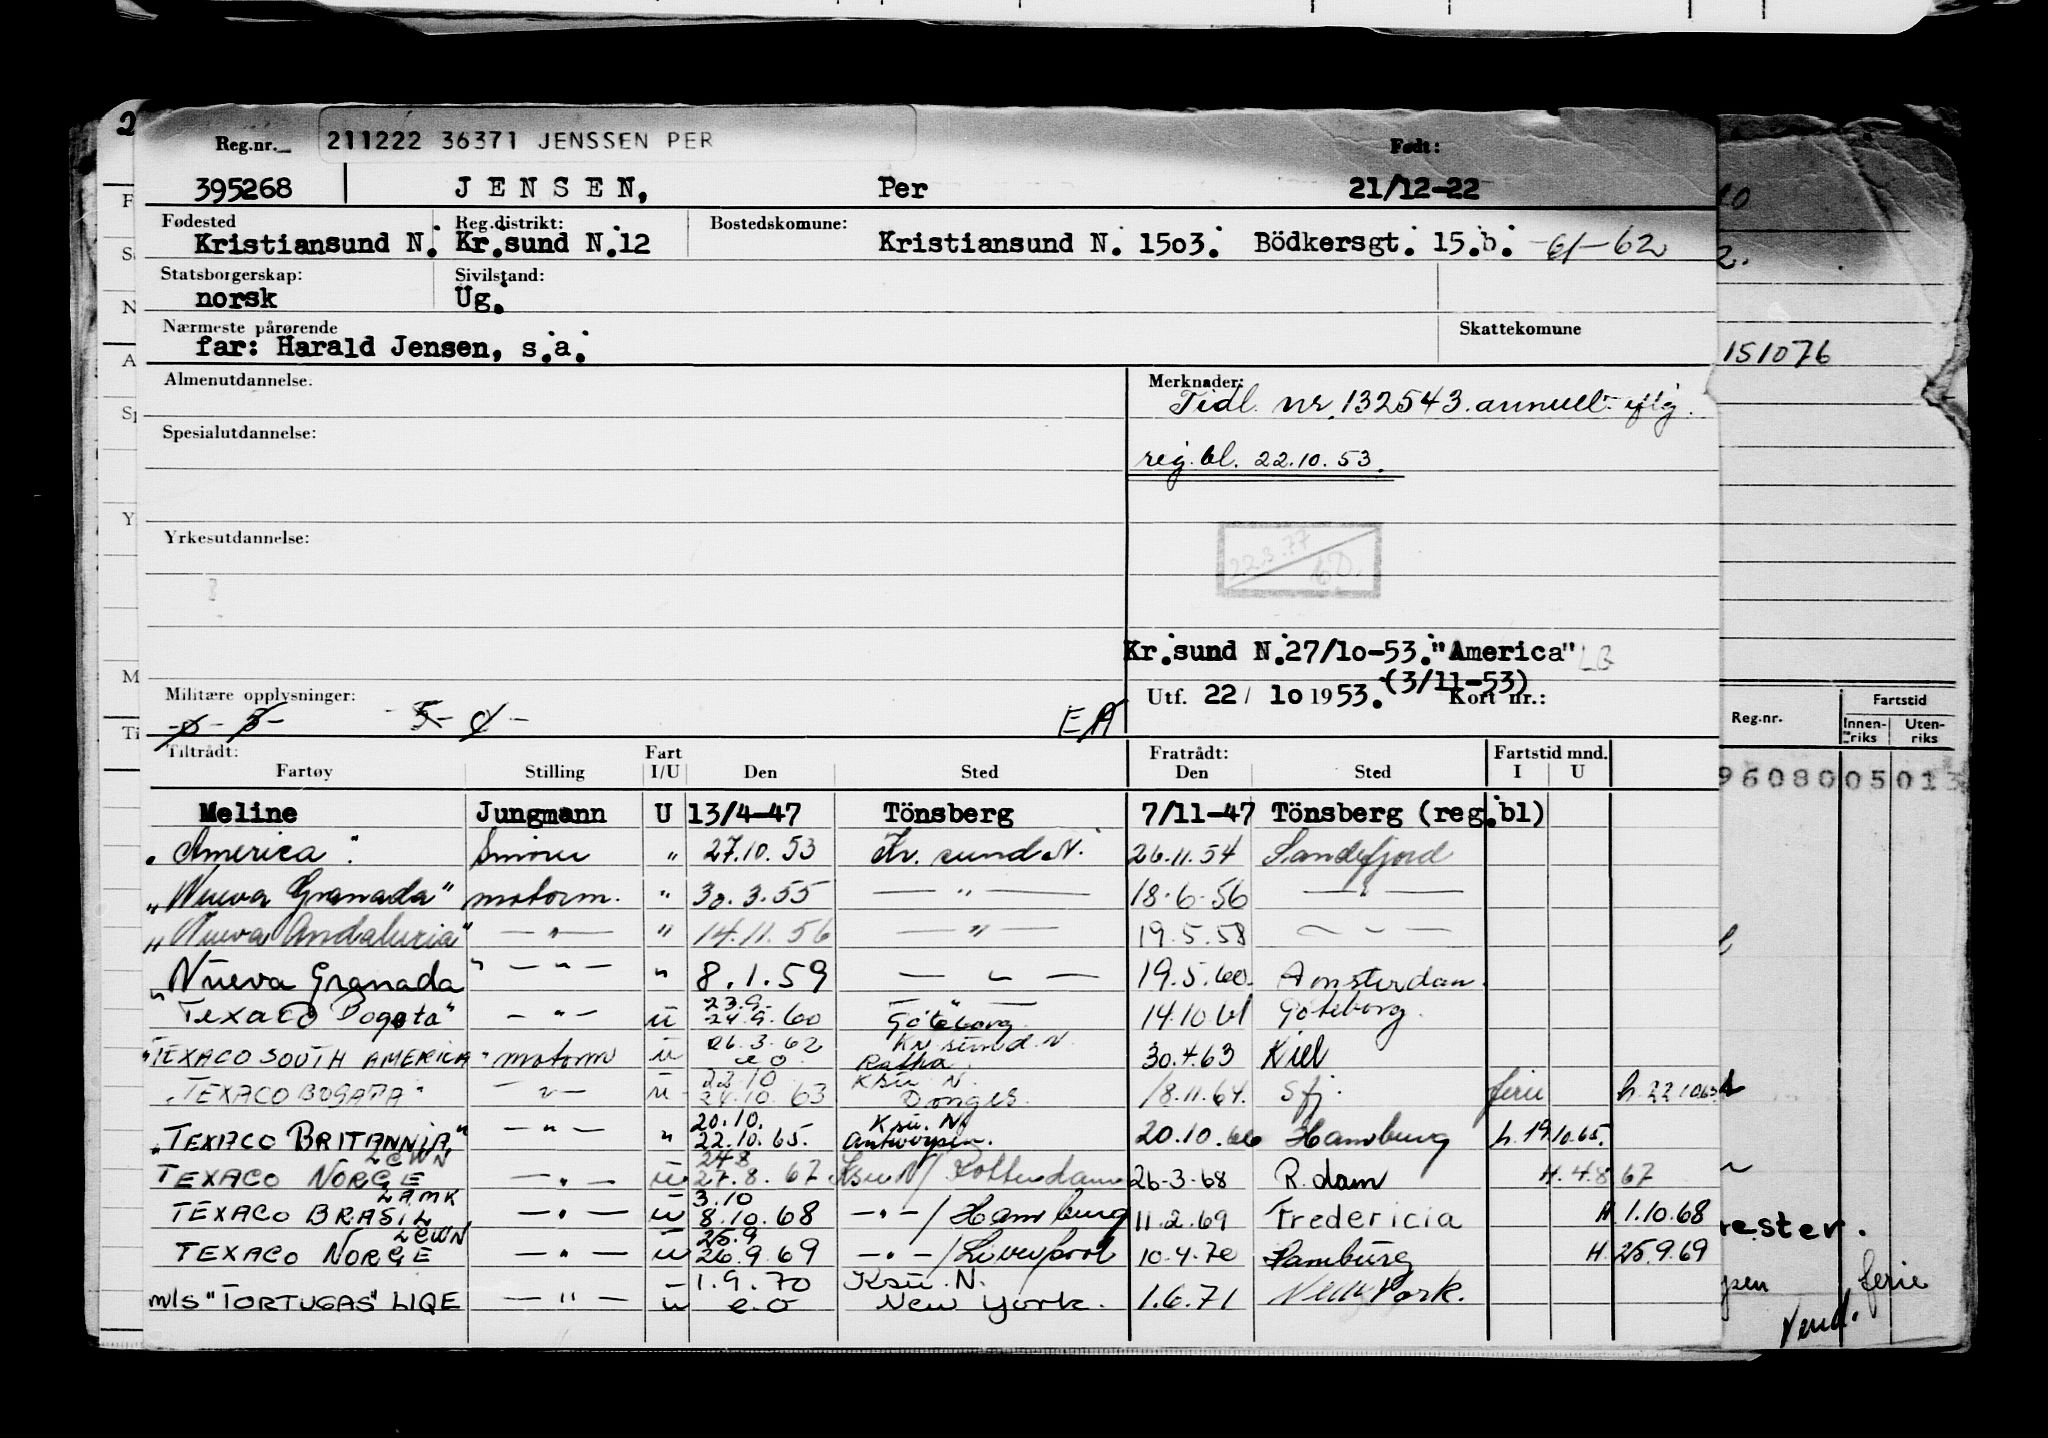 2
Reg.nr. 211222 36371 JENSSEN PER Født:
395268 JENSEN, Per 21/12-22
Fødested Reg.distrikt: Bostedskomune:
Kristiansund N. Kr.sund N.12 Kristiansund N. 1503. Bödkersgt. 15.b. -61-62
Statsborgerskap: Sivilstand:
norsk Ug.
Nærmeste pårørende Skattekomune
far: Harald Jensen, s.a. 151076
Almenutdannelse. Merknader:
Tidl. nr. 132543 annull. iflg.
Spesialutdannelse:
reg. bl. 22.10.53.
Yrkesutdannelse:
22.3.77
Kr.sund N.27/10-53."America" LB
(3/11-53)
Militære opplysninger: Utf. 22/ 10 1953. Kort nr.:
Reg.nr. Fartstid
Innen-riks Uten-riks
Tiltrådt: Fart Fratrådt: Fartstid mnd.
Fartøy Stilling I/U Den Sted Den Sted I U
960800 05 013
Meline Jungmann U 13/4-47 Tönsberg 7/11-47 Tönsberg (reg.bl)
"America". Smører " 27.10.53 Kr. sund N. 26.11.54 Sandefjord
"Nueva Granada" motorm. " 30.3.55 — " — 18-6-56 — " —
"Nueva Andalucia" — " — " 14.11.56 — " — 19.5.58 — " —
"Nueva Granada" — " — " 8.1.59 — " — 19.5.60. Amsterdam.
"Texaco Bogota" — " — u 23.9.- 24.9.60 — " — Göteborg 14.10.61 Göteborg.
"TEXACO SOUTH AMERICA" motorm u 26.3.62 e o Kr sund. N. 30.4.63 Kiel
"TEXACO BOGATA" — " — u 22.10 24.10.63 Ksu. N. Donges. 18.11.64. Sfj. ferie h. 22.10.63
"TEXACO BRITANNIA" — " — " 20.10. 22.10.65. Ksu. N. Antwerpen. 20.10.66 Hamburg h. 19.10.65.
TEXACO NORGE LCWN — " — u 24.8 27.8.67 Ksu N/ Rotterdam 26-3-68 R.dam H. 4.8.67
TEXACO BRASIL LAMK — " — u 3.10 8.10.68 — " —/Hamburg 11.2.69 Fredericia H 1.10.68
rester.
TEXACO NORGE LCWN — " — u 25.9 26.9.69 — " —/Liverpool 10.4.70 Hamburg H. 25.9.69
m/s "TORTUGAS" LIQE — " — u 1.9.70 e.o Ksu. N. New York. 1.6.71 New York.
ferie
Vend.